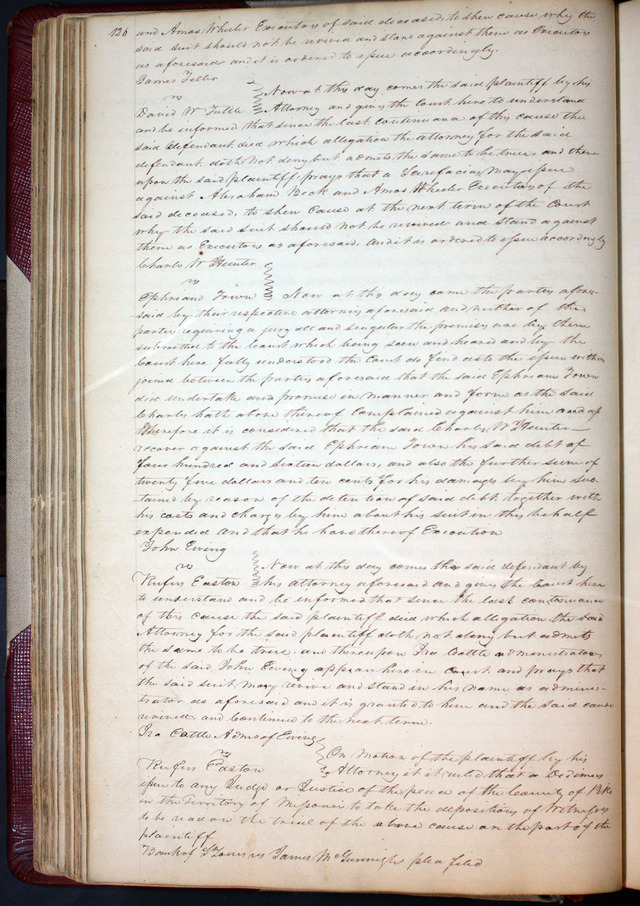 126 and Amos Wheeler Executors of said deceased, to shew cause why the
said suit should not be revived and stand against them as Executors
as aforesaid and it is ordered to issue accordingly.
James Teller
vs
David W Tuttle Now at this day comes the said plaintiff by his
Attorney and gives the Court here to understand
and be informed that since the last continuance of this cause the
said defendant died which allegation the attorney for the said
defendant doth not deny but admits the same to be true and there
upon the said plaintiff prays that a Scirefacias may issue
against Abraham Beck and Amos Wheeler Executors of the
said deceased, to shew Cause at the next term of the Court
why the said suit should not be revived and stand against
them as Executors as aforesaid. and it is ordered to issue accordingly
Charles W Hunter
vs
Ephriam Town Now at this day come the parties afore-
said by their respective attornies aforesaid and neither of the
parties requiring a jury all and singular the premises are by them
submitted to the Court which being seen and heard and by the
Court here fully understood the Court do find as to the issue within
joined between the parties aforesaid that the said Ephriam Town
did undertake and promise in manner and form as the said
Charles hath above thereof Complained against him
Therefore it is considered that the said Charles W Hunter
recover against the said Ephriam Town his said debt of
four hundred and sixteen dollars, and also the further sum of
twenty five dollars and ten cents for his damages by him sus-
tained by reason of the detention of said debt together with
his costs and charges by him about his suit in this behalf
expended and that he have thereof Execution
John Ewing
vs
Rufus Easton Now at this day comes the said defendant by
his attorney aforesaid and gives the Court here
to understand and be informed that since the last continuance
of this cause the said plaintiff died which allegation the said
Attorney for the said plaintiff doth not deny but admits
the same to be true and thereupon Ira Cottle administrator
of the said John Ewing appears here in Court and prays that
the said suit may revive and stand in his name as adminis-
trator as aforesaid and it is granted to him and the said cause
revived and continued to the next term.
Ira Cottle Admr of Ewing
vs
Rufus Easton On Motion of the plaintiff by his
Attorney it is ruled that a Dedimus
issue to any Judge or Justice of the peace of the County of Pike
in the Territory of Missouri to take the depositions of Witnesses
to be read on the trial of the above cause on the part of the
plaintiff
Bank of St Louis vs James McGunnigle plea filed